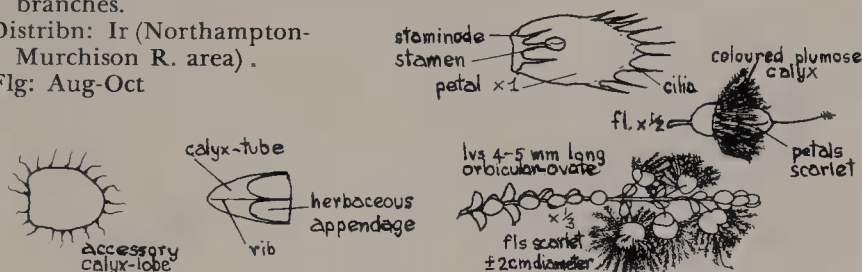 branches.
Distribn: Ir (Northampton-
Murchison R. area).
Flg: Aug-Oct
staminode
stamen
petal ×1
cilia
coloured plumose
calyx
fl. ×½
petals
scarlet
calyx-tube
herbaceous
appendage
rib
accessory
calyx-lobe
lvs 4-5 mm long
orbicular-ovate
×⅓
fls scarlet
±2cm diameter